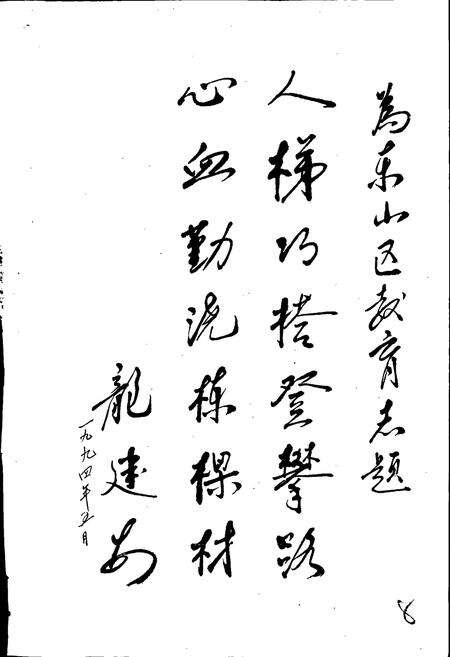 為东山区教育志题
人梯巧搭登攀路
心血勤浇栋樑材
龍建安
一九九四年五月
8